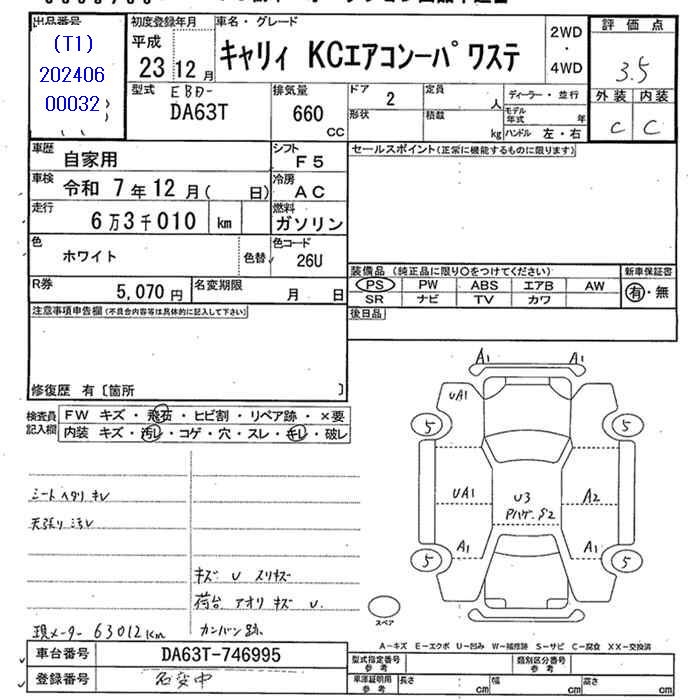 出品番号
(T1)
202406
00032
初度登録年月
平成
23 12月
車名・グレード
キャリィ KCエアコンーパワステ
2WD
・
4WD
評価点
3.5
外装 内装
C C
型式 EBD-
DA63T
排気量
660
CC
ドア 2
形状
定員 人
積載 kg
ディーラー・並行
モデル年式 年
ハンドル 左・右
車歴 自家用
シフト F5
セールスポイント(正常に機能するものに限ります)
車検 令和 7年12月( 日)
冷房 AC
走行 6万3千010 km
燃料 ガソリン
色 ホワイト 色替
色コード 26U
装備品 (純正品に限り〇をつけてください)
新車保証書
PS PW ABS エアB AW
有・無
SR ナビ TV カワ
R券 5,070円
名変期限 月 日
後日品
注意事項申告欄(不具合内容等は具体的に記入して下さい)
修復歴 有〔箇所 〕
検査員記入欄
FW キズ・飛石・ヒビ割・リペア跡・×要
内装 キズ・汚レ・コゲ・穴・スレ・キレ・破レ
A1 A1
UA1
5 5
UA1 U3 A2
A1 A1
5 5
シートヘタリ キレ
天張り 汚レ
キズ U スリキズ
荷台 アオリ キズ U.
現メーター 63012km カンバン跡.
スペア
A-キズ E-エクボ U-凹み W-補修跡 S-サビ C-腐食 XX-交換済
車台番号 DA63T-746995
登録番号 名変中
型式指定番号 参考
類別区分番号 参考
車庫証明用 参考 長さ cm 幅 cm 高さ cm